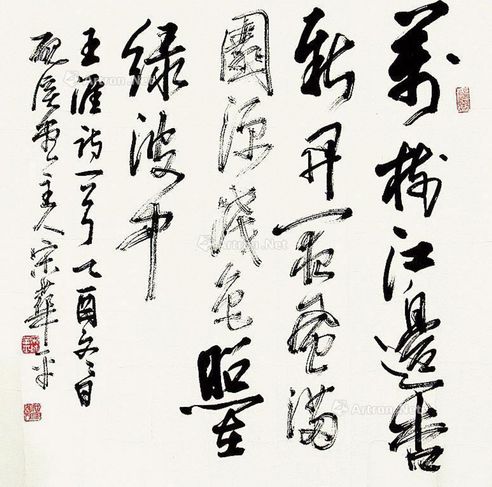 萬樹江邊杏
新開一夜風滿
園深淺色照在
綠波中
王涯詩一首乙酉冬日
硯溪堂主人宋華平
Artron.Net
Artron.Net
Artron.Net